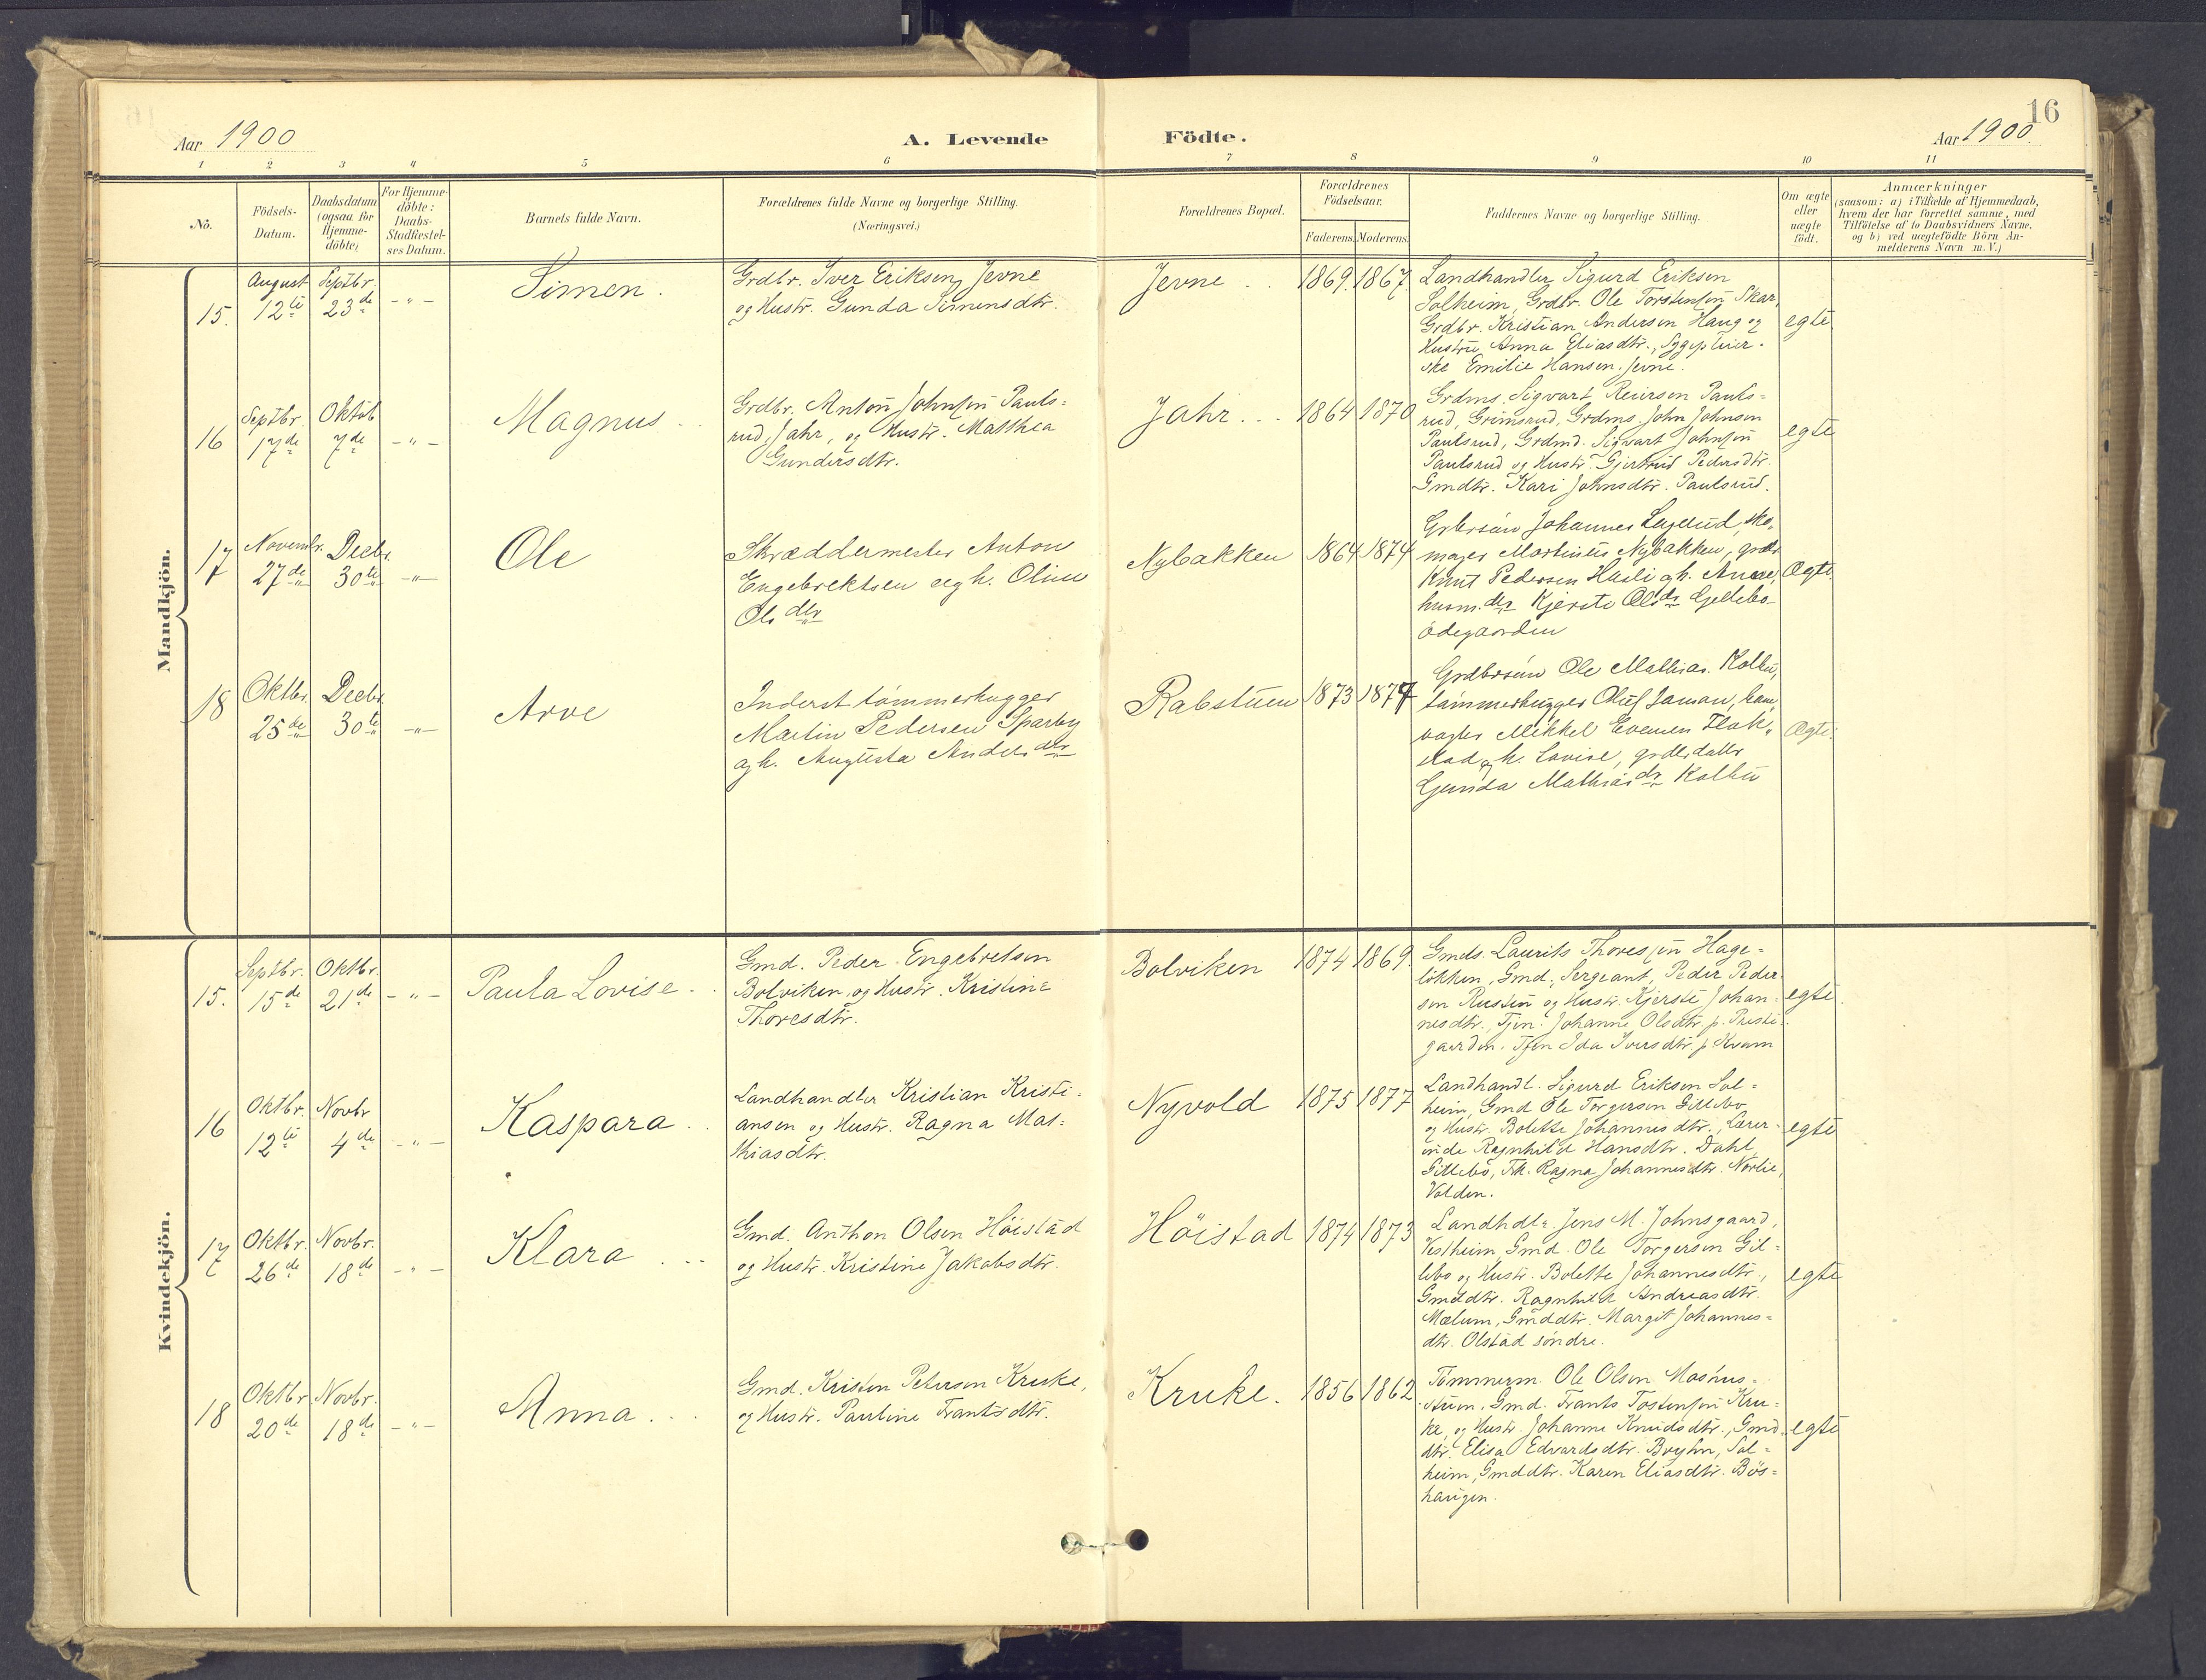 16
Aar 1900
A. Levende
Födte.
Aar 1900.
1 2 3 4 5 6 7 8 9 10 11
No.
Födsels-
Datum.
Daabsdatum
(ogsaa for
Hjemme-
döbte)
For Hjemme-
döbte:
Daabs-
Stadfæstel-
ses Datum.
Barnets fulde Navn.
Forældrenes fulde Navne og borgerlige Stilling.
(Næringsvei.)
Forældrenes Bopæl.
Forældrenes
Födselsaar.
Faderens. Moderens.
Faddernes Navne og borgerlige Stilling.
Om ægte
eller
uægte
født.
Anmærkninger
(saasom: a) i Tilfælde af Hjemmedaab,
hvem der har forrettet samme, med
Tilföielse af to Daabsvidners Navne,
og b) ved uægtefödte Börn An-
melderens Navn m.V.)
Mandkjön.
15.
August
12te
Septbr.
23de
-"-
Simen.
Grdbr. Iver Eriksen, Jevne
og Hustr. Gunda Simensdtr.
Jevne
1869. 1867.
Landhandler Sigurd Eriksen
Solheim, Grdbr. Ole Torstensen Skar,
Grdbr. Kristian Andersen Haug og
Hustru Anna Eliasdtr.,
ske Emilie Hansen, Jevne.
egte
16
Septbr.
17de
Oktob
7de
-"-
Magnus
Grdbr. Anton Johnsen Pauls=
rud, Jahr, og Hustr. Matthea
Gundersdtr.
Jahr
1864 1870
Grdms. Sigvart Reiersen Pauls=
rud, Grimsrud, Grdms. John Johnsen
Paulsrud, Grdmd. Sigvart Johnsen
Paulsrud og Hustr. Gjertrud Pedersdtr.
Gmdtr. Kari Johnsdtr. Paulsrud.
egte
17
Novembr.
27de
Decbr.
30te
-"-
Ole
Skræddermester Anton
Engebrektsen og h. Oline
Olsdtr
Nybakken
1864 1874
Johannes
mager Martinius Nybakken,
Knut Pedersen og h. Anne,
husm.dtr Kjersti Olsdr Gillebo-
ödegaarden
Ægte
18
Oktbr.
25de
Decbr.
30te
-"-
Arve
Inderst tömmerhugger
Martin Pedersen Sparby
og h. Augusta Andersdtr
Rabstuen
1873 1877
Grdbrsön Ole Mathias. Kolbu,
tömmerhugger Oluf
Mikkel Evensen
stad og h. Lovise,
Gunda Mathiasdr Kolbu
Ægte.
Kvindekjön.
15.
Septbr.
15de
Oktbr.
21de
-"-
Paula Lovise
Gmd. Peder Engebretsen
Bolviken, og Hustr. Kristine
Thoresdtr.
Bolviken
1874 1869.
Gmds. Laurits Thoresen Hage=
lökken, Gmd., Sergeant, Peder Peder
sen Rusten og Hustr. Kjersti Johan=
nesdtr., Tjen. Johanne Olsdtr. p. Preste
gaarden. Tjen Ida Iversdtr. p. Kvam
egte.
16
Oktbr.
12te
Novbr
4de
-"-
Kaspara
Landhandler Kristian Kristi=
ansen og Hustr. Ragna Mat=
hiasdtr.
Nyvold
1875 1877
Landhandl. Sigurd Eriksen Sol=
heim, Gmd Ole Torgersen Gillebo
og Hustr. Bolette Johannesdtr., Lærer=
inde Ragnhild Hansdtr. Dahl,
Gillebo, Frk. Ragna Johannesdtr. Nordlie,
Volden.
egte
17
Oktbr.
26de
Novbr.
18de
-"-
Klara
Gmd. Anthon Olsen Höistad
og Hustr. Kristine Jakobsdtr.
Höistad
1874 1873
Landhdlr. Jens M. Johnsgaard,
Vestheim, Gmd. Ole Torgersen Gil=
lebo og Hustr. Bolette Johannesdtr.,
Gmddtr. Ragnhild Andreasdtr.
Mælum, Gmddtr. Margit Johannes=
dtr. Olstad söndre.
egte
18
Oktbr
20de
Novbr.
18de
-"-
Anna
Gmd. Kristen Petersen Kruke,
og Hustr. Pauline Frantsdtr.
Kruke.
1856 1862
Tömmerm. Ole Olsen Moshus=
stuen, Gmd. Frants Tostensen Kru=
ke, og Hustr. Johanne Knudsdtr., Gmd
dtr. Elisa Edvardsdtr. Bryhn, Sol=
heim, Gmddtr. Karen Eliasdtr. Bös=
haugen.
egte